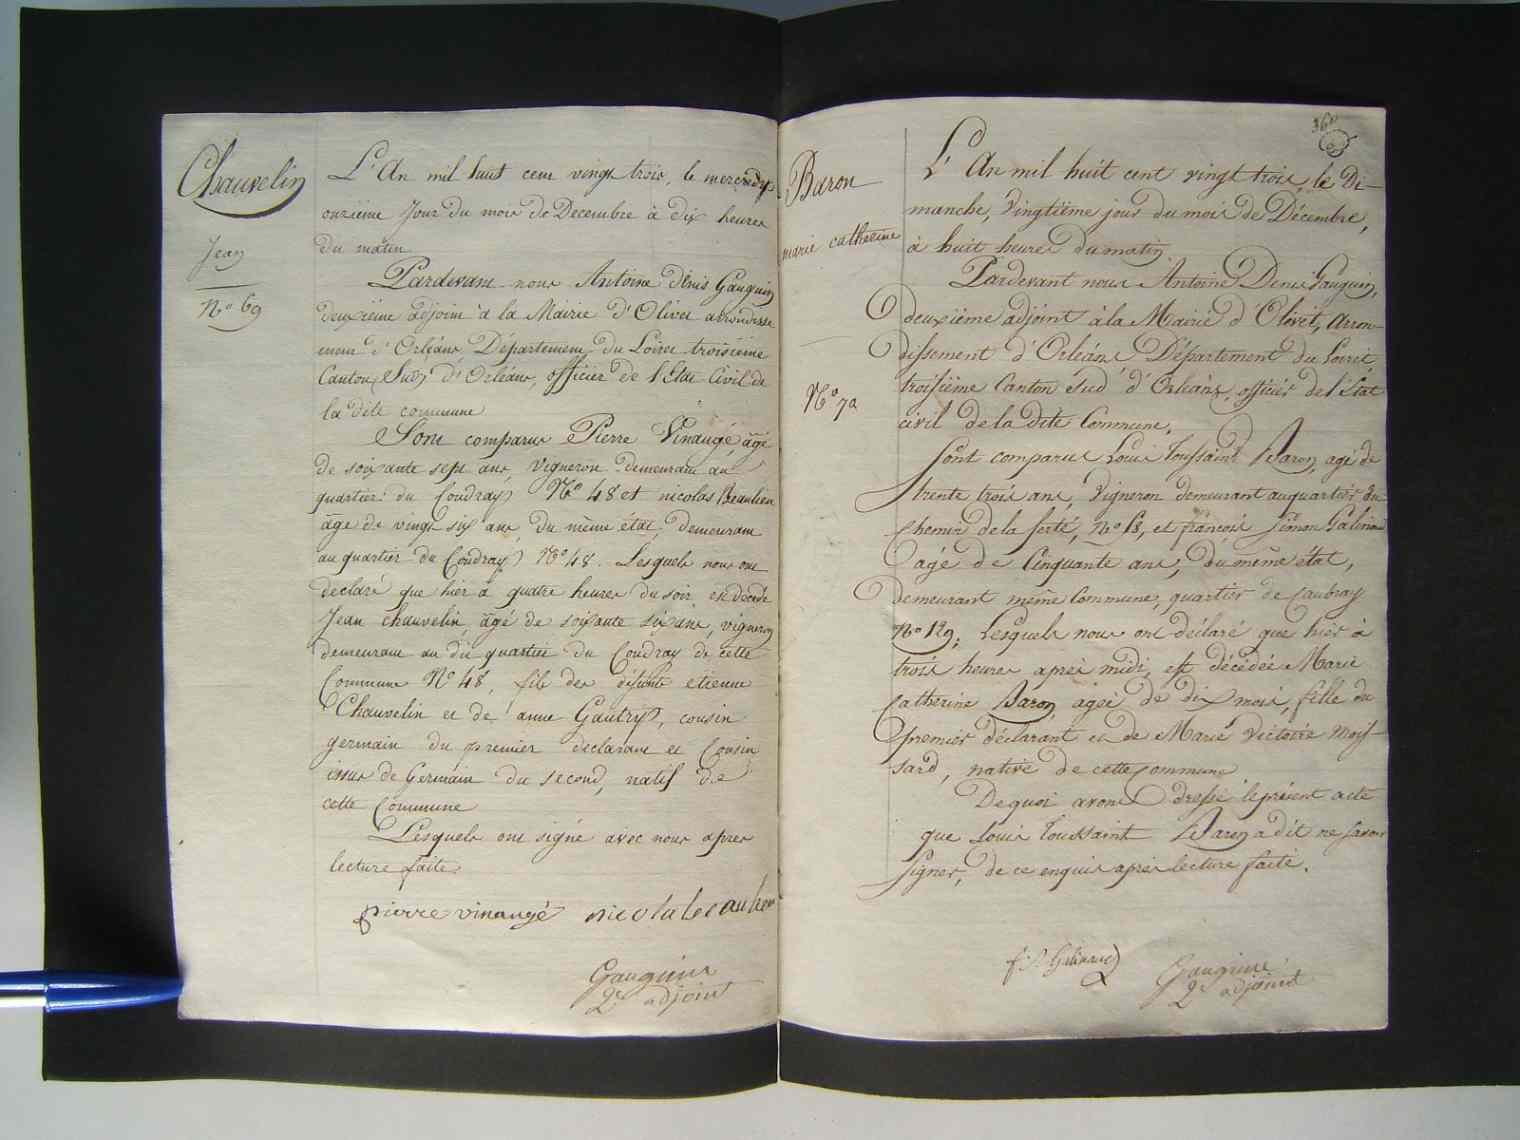 Chauvelin
Jean
N.o 69
L'An mil huit cent vingt trois, le mercredy
onzième Jour du mois de Decembre à dix heures
du matin
Pardevant nous Antoine denis Gauguin
deuxième adjoint à la Mairie d'Olivet arrondisse
ment d'Orléans Département du Loiret troisième
Canton Sud d'Orléans, officier de l'Etat Civil de
la dite commune
Sont comparus Pierre Vinaugé, âgé
de soixante sept ans, vigneron demeurant au
quartier du Coudray N.o 48 et nicolas Beaulieu
âgé de vingt six ans, du même état, demeurant
au quartier du Coudray N.o 48. Lesquels nous ont
declaré que hier à quatre heures du soir est décédé
Jean chauvelin, âgé de soixante six ans, vigneron
demeurant au dit quartier du Coudray de cette
Commune N.o 48, fils des défunts etienne
Chauvelin et de anne Gautry, cousin
germain du premier declarant et Cousin
issus de Germain du second, natif de
cette Commune
Lesquels ont signé avec nous apres
lecture faite
pierre vinaugé
Gauguin
2.e adjoint
360
Baron
marie catherine
N.o 70
L'An mil huit cent vingt trois, le Di-
manche, Vingtième jour du mois de Décembre,
à huit heures du matin
Pardevant nous Antoine Denis Gauguin,
deuxième adjoint à la Mairie d'Olivet, Arron-
dissement d'Orléans Département du Loiret,
troisième Canton Sud d'Orléans, officier de l'Etat
civil de la dite Commune.
Sont comparus Louis Toussaint Baron, agé de
trente trois ans, Vigneron demeurant au quartier du
chemin de la ferté, et françois Simon Galinau
agé de Cinquante ans, du même état,
demeurant même Commune, quartier de Caubray
N.o 129, Lesquels nous ont déclaré que hier à
trois heures après midi, est décédée Marie
Catherine Baron, agée de dix mois, fille du
premier déclarant et de Marie Victoire Mois-
sard, native de cette Commune
De quoi avons dressé le présent acte
que Louis Toussaint Baron a dit ne savoir
signer, de ce enquis après lecture faite.
Gauguin
2.e adjoint